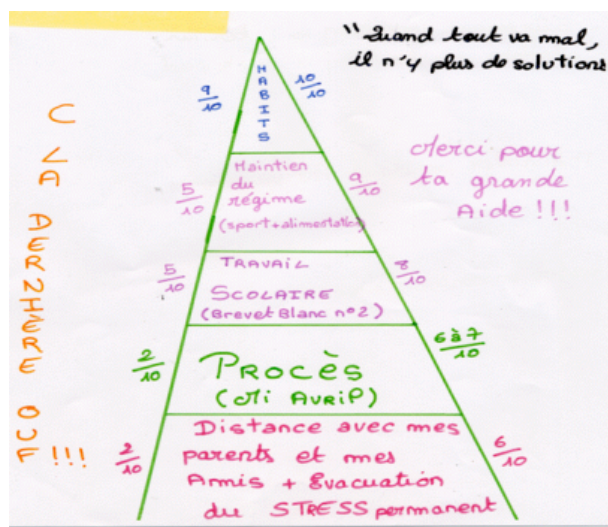 "Quand tout va mal,
il n'y plus de solutions
C LA DERNIERE OUF !!!
Merci pour
ta grande
Aide !!!
9/10
HABITS
10/10
5/10
Maintien
du
régime
(sport+alimentation)
9/10
5/10
TRAVAIL
SCOLAIRE
(Brevet Blanc n°2)
8/10
2/10
PROCÈS
(Mi AVRIL)
6 à 7/10
2/10
Distance avec mes
parents et mes
Amis + Evacuation
du STRESS permanent
6/10